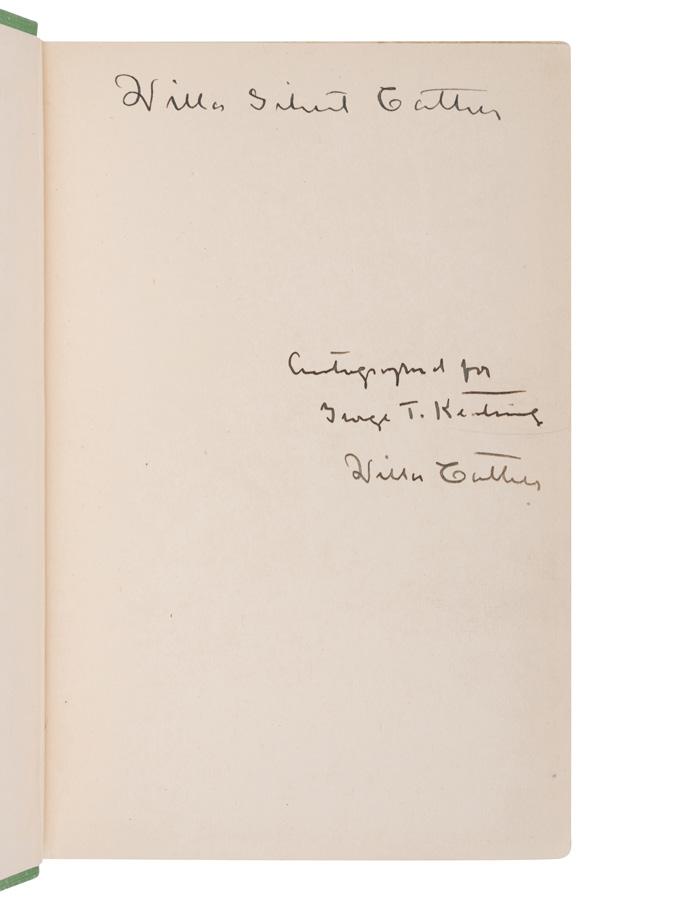 Willa Sibert Cather
Autographed for
George T. Keating
Willa Cather